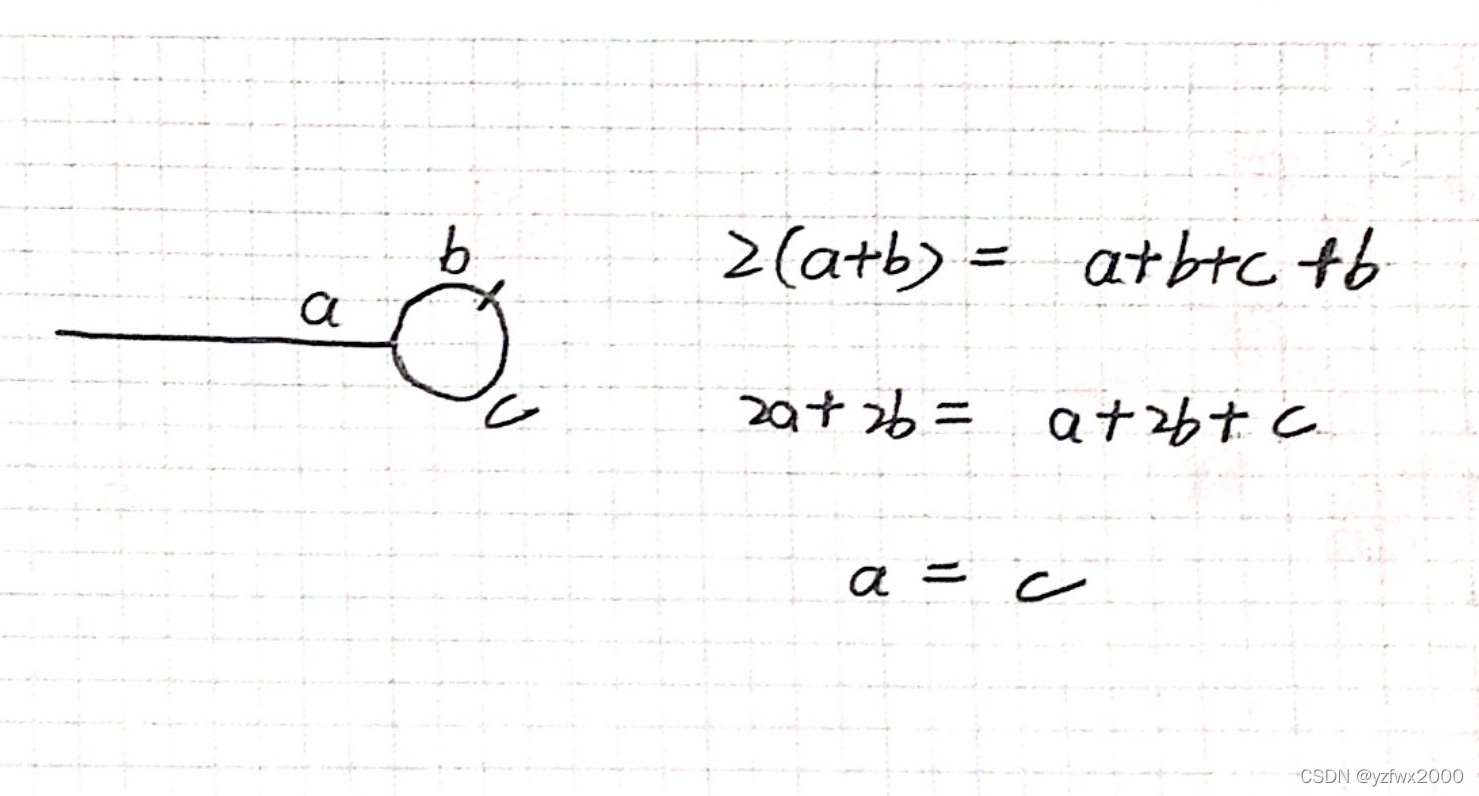 b
a
c
2(a+b) = a+b+c+b
2a+2b = a+2b+c
a = c
CSDN @yzfwx2000